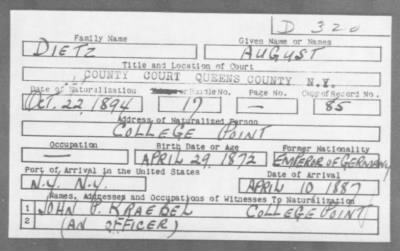 D 320
Family Name Given Name or Names
DIETZ AUGUST
Title and Location of Court
COUNTY COURT QUEENS COUNTY N.Y.
Date of Naturalization or Bundle No. Page No. Copy of Record No.
OCT. 22, 1894 17 — 85
Address of Naturalized Person
COLLEGE POINT
Occupation Birth Date or Age Former Nationality
— APRIL 29, 1872 EMPEROR OF GERMANY
Port of Arrival in the United States Date of Arrival
N.Y. N.Y. APRIL 10 1887
Names, Addresses and Occupations of Witnesses To Naturalization
1 JOHN P. KRAEBEL COLLEGE POINT
2 (AN OFFICER)